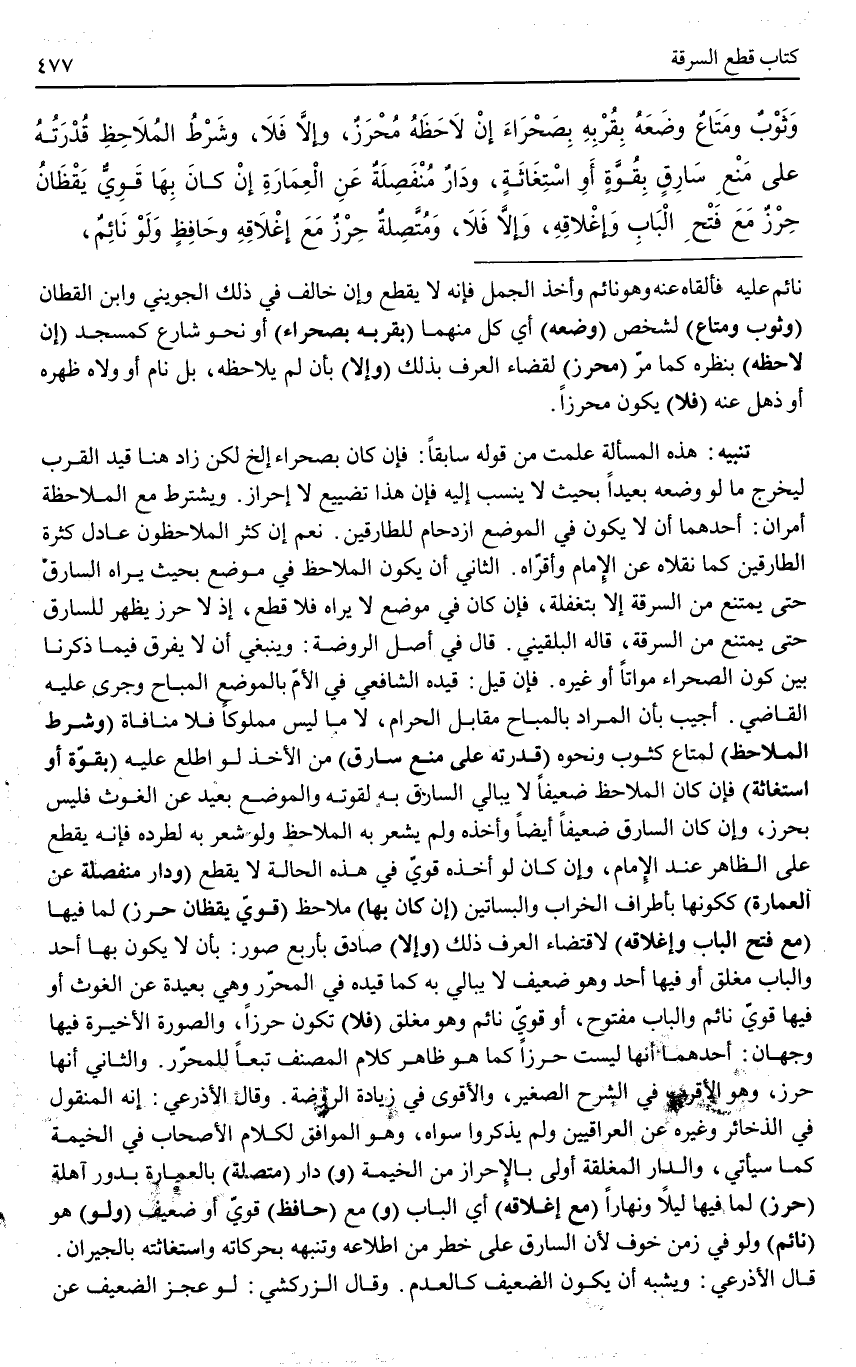 كتاب قطع السرقة
٤٧٧
وَثَوْبٌ ومَتَاعٌ وضَعَهُ بِقُرْبِهِ بِصَحْرَاءَ إنْ لَاحَظَهُ مُحْرَزٌ، وإلَّا فَلَا، وشَرْطُ المُلَاحِظِ قُدْرَتُهُ
على مَنْعِ سَارِقٍ بِقُوَّةٍ أَوِ اسْتِغَاثَةٍ، ودَارٌ مُنْفَصِلَةٌ عَنِ الْعِمَارَةِ إنْ كانَ بِهَا قَوِيٌّ يَقْظَانُ
حِرْزٌ مَعَ فَتْحِ الْبَابِ وَإغْلاقِهِ، وَإلَّا فَلَا، وَمُتَّصِلةٌ حِرْزٌ مَعَ إغْلَاقِهِ وحَافِظٍ وَلَوْ نَائِمٌ،
نائم عليه فألقاه عنه وهو نائم وأخذ الجمل فإنه لا يقطع وإن خالف في ذلك الجويني وابن القطان
(وثوب ومتاع) لشخص (وضعه) أي كل منهما (بقربه بصحراء) أو نحو شارع كمسجد (إن
لاحظه) بنظره كما مرّ (محرز) لقضاء العرف بذلك (وإلا) بأن لم يلاحظه، بل نام أو ولاه ظهره
أو ذهل عنه (فلا) يكون محرزاً.
تنبيه: هذه المسألة علمت من قوله سابقاً: فإن كان بصحراء إلخ لكن زاد هنا قيد القرب
ليخرج ما لو وضعه بعيداً بحيث لا ينسب إليه فإن هذا تضييع لا إحراز. ويشترط مع الملاحظة
أمران: أحدهما أن لا يكون في الموضع ازدحام للطارقين. نعم إن كثر الملاحظون عادل كثرة
الطارقين كما نقلاه عن الإمام وأقرّاه. الثاني أن يكون الملاحظ في موضع بحيث يراه السارقُ
حتى يمتنع من السرقة إلا بتغفلة، فإن كان في موضع لا يراه فلا قطع، إذ لا حرز يظهر للسارق
حتى يمتنع من السرقة، قاله البلقيني. قال في أصل الروضة: وينبغي أن لا يفرق فيما ذكرنا
بين كون الصحراء مواتاً أو غيره. فإن قيل: قيده الشافعي في الأمّ بالموضع المباح وجرى عليه
القاضي. أجيب بأن المراد بالمباح مقابل الحرام، لا ما ليس مملوكاً فلا منافاة (وشرط
الملاحظ) لمتاع كثوب ونحوه (قدرته على منع سارق) من الأخذ لو اطلع عليه (بقوّة أو
استغاثة) فإن كان الملاحظ ضعيفاً لا يبالي السارق به لقوته والموضع بعيد عن الغوث فليس
بحرز، وإن كان السارق ضعيفاً أيضاً وأخذه ولم يشعر به الملاحظ ولو شعر به لطرده فإنه يقطع
على الظاهر عند الإمام، وإن كان لو أخذه قويّ في هذه الحالة لا يقطع (ودار منفصلة عن
العمارة) ككونها بأطراف الخراب والبساتين (إن كان بها) ملاحظ (قويّ يقظان حرز) لما فيها
(مع فتح الباب وإغلاقه) لاقتضاء العرف ذلك (وإلا) صادق بأربع صور: بأن لا يكون بها أحد
والباب مغلق أو فيها أحد وهو ضعيف لا يبالي به كما قيده في المحرّر وهي بعيدة عن الغوث أو
فيها قويّ نائم والباب مفتوح، أو قويّ نائم وهو مغلق (فلا) تكون حرزاً، والصورة الأخيرة فيها
وجهان: أحدهما أنها ليست حرزاً كما هو ظاهر كلام المصنف تبعاً للمحرّر. والثاني أنها
حرز، وهو الأقرب في الشرح الصغير، والأقوى في زيادة الروضة. وقال الأذرعي: إنه المنقول
في الذخائر وغيره عن العراقيين ولم يذكروا سواه، وهو الموافق لكلام الأصحاب في الخيمة
كما سيأتي، والدار المغلقة أولى بالإحراز من الخيمة (و) دار (متصلة) بالعمارة بدور آهلة
(حرز) لما فيها ليلًا ونهاراً (مع إغلاقه) أي الباب (و) مع (حافظ) قويّ أو ضعيف (ولو) هو
(نائم) ولو في زمن خوف لأن السارق على خطر من اطلاعه وتنبهه بحركاته واستغاثته بالجيران.
قال الأذرعي: ويشبه أن يكون الضعيف كالعدم. وقال الزركشي: لو عجز الضعيف عن